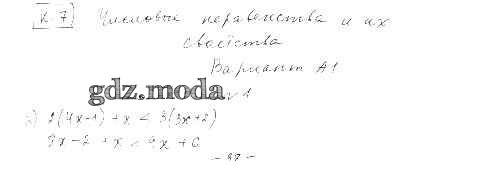 К-7 Числовые неравенства и их
свойства
Вариант А1
gdz.moda
№1
а) 2(4x-1)+x < 3(3x+2)
8x-2+x < 9x+6
- 37 -